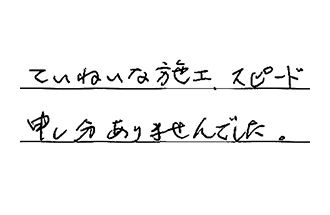 ていねいな施工、スピード
申し分ありませんでした。